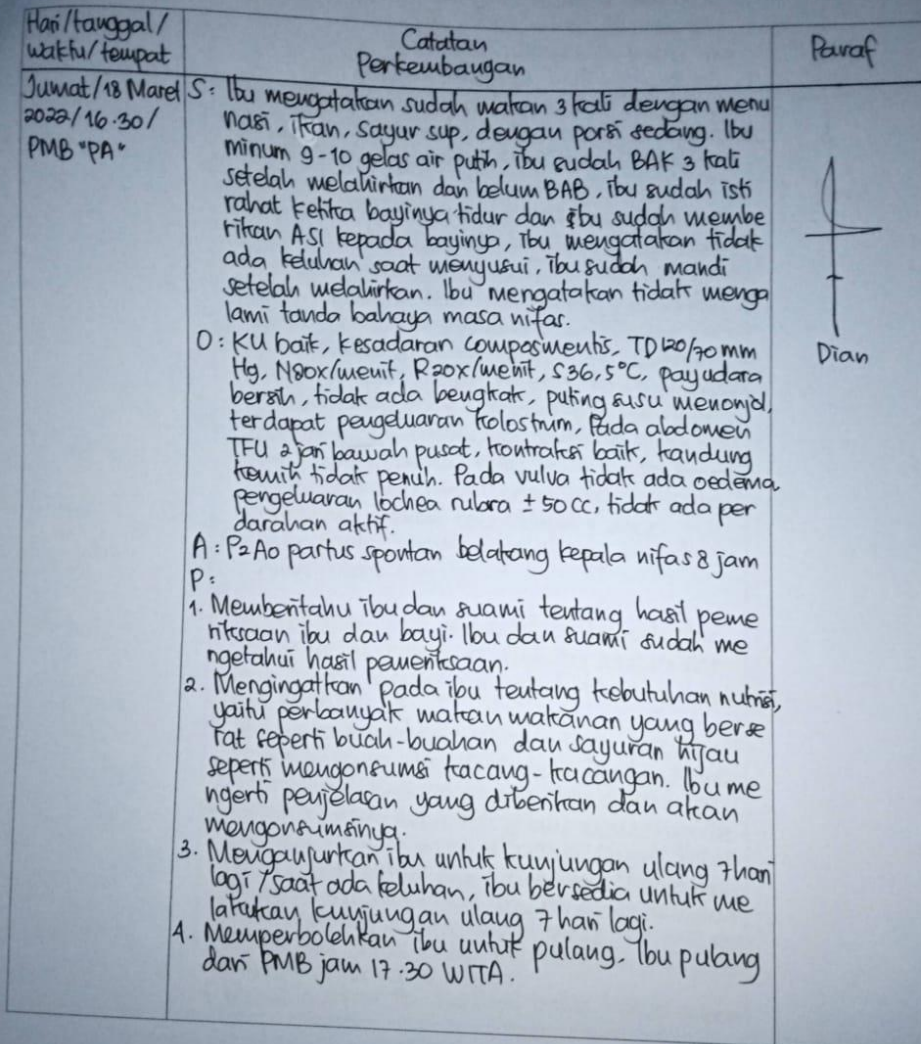 Hari/tanggal/
waktu/tempat
Catatan
Perkembangan
Paraf
Jumat/18 Maret
2022/16.30/
PMB "PA"
S: Ibu mengatakan sudah makan 3 kali dengan menu
nasi, ikan, sayur sup, dengan porsi sedang. Ibu
minum 9-10 gelas air putih, ibu sudah BAK 3 kali
setelah melahirkan dan belum BAB, ibu sudah isti
rahat ketika bayinya tidur dan ibu sudah membe
rikan ASI kepada bayinya, ibu mengatakan tidak
ada keluhan saat menyusui, ibu sudah mandi
setelah melahirkan. Ibu mengatakan tidak menga
lami tanda bahaya masa nifas.
O: KU baik, kesadaran composmentis, TD 120/70 mm
Hg, N80x/menit, R20x/menit, S36,5°C, payudara
bersih, tidak ada bengkak, puting susu menonjol,
terdapat pengeluaran kolostrum, Pada abdomen
TFU 2 jari bawah pusat, kontraksi baik, kandung
kemih tidak penuh. Pada vulva tidak ada oedema
pengeluaran lochea rubra ± 50 cc, tidak ada per
darahan aktif.
A: P2A0 partus spontan belakang kepala nifas 8 jam
P:
1. Memberitahu ibu dan suami tentang hasil peme
riksaan ibu dan bayi. Ibu dan suami sudah me
ngetahui hasil pemeriksaan.
2. Mengingatkan pada ibu tentang kebutuhan nutrisi,
yaitu perbanyak makan makanan yang berse
rat seperti buah-buahan dan sayuran hijau
seperti mengonsumsi kacang-kacangan. Ibu me
ngerti penjelasan yang diberikan dan akan
mengonsumsinya.
3. Menganjurkan ibu untuk kunjungan ulang 7 hari
lagi / saat ada keluhan, ibu bersedia untuk me
lakukan kunjungan ulang 7 hari lagi.
4. Memperbolehkan ibu untuk pulang. Ibu pulang
dari PMB jam 17.30 WITA.
Dian